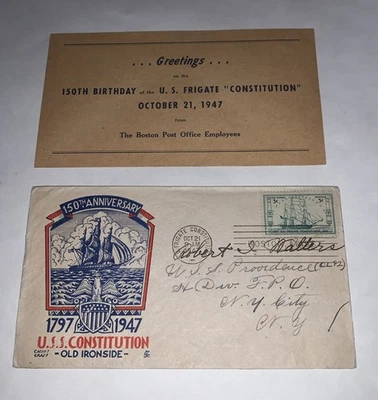 ... Greetings ...
on the
150TH BIRTHDAY of the U. S. FRIGATE "CONSTITUTION"
OCTOBER 21, 1947
from
The Boston Post Office Employees
150TH ANNIVERSARY
1797 1947
U.S.S. CONSTITUTION
- OLD IRONSIDE -
CACHET CRAFT
FRIGATE CONSTITUTION
OCT 21
Robert Walters
U.S.S. Providence (CL 82)
H Div. F.P.O.
N.Y. City
N.Y